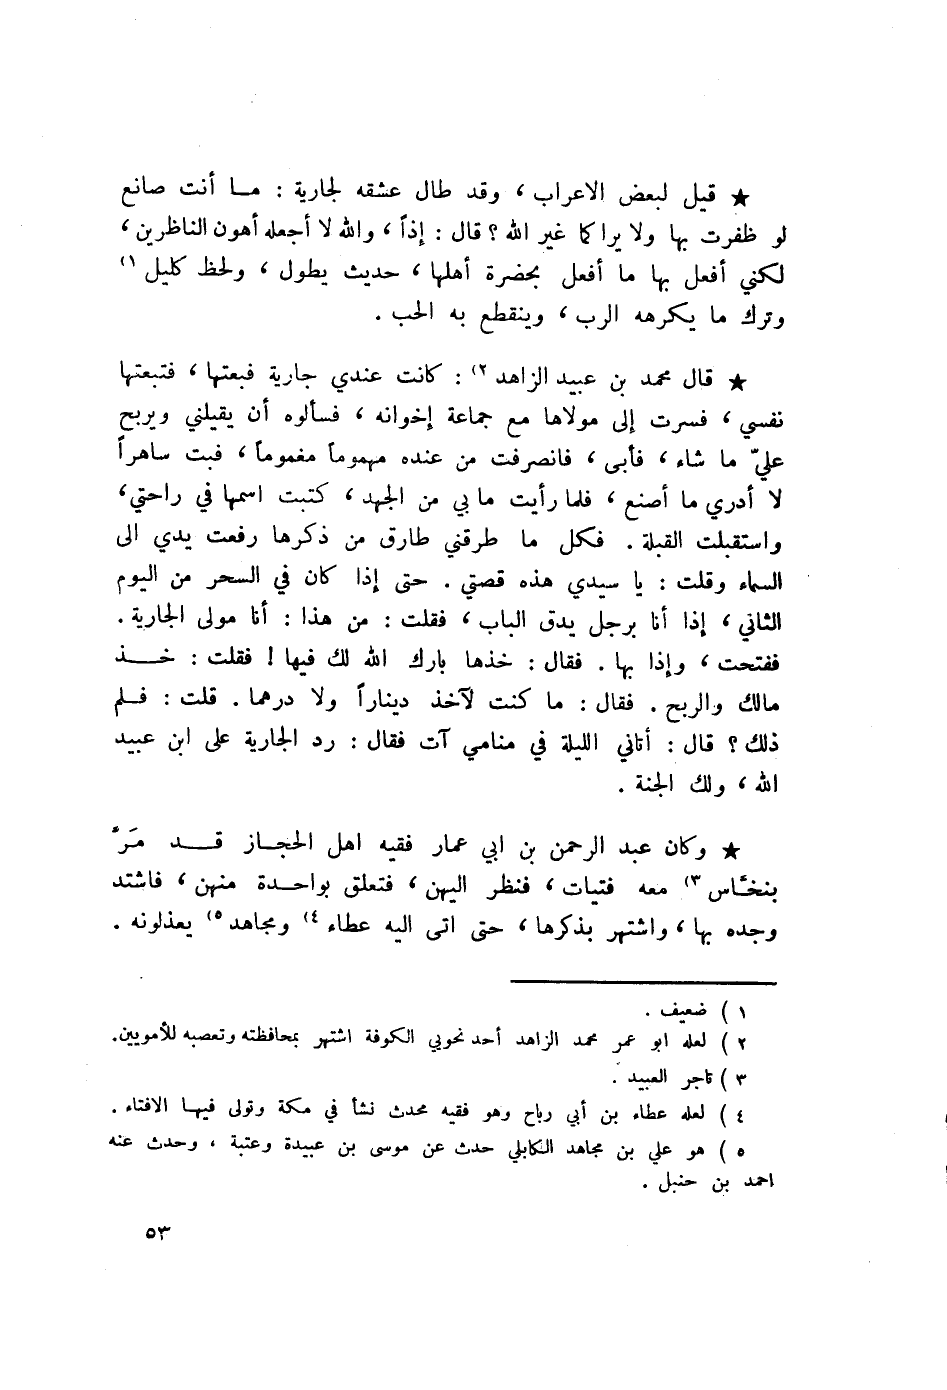 ★ قيل لبعض الاعراب ، وقد طال عشقه لجارية : مـا أنت صانع
لو ظفرت بها ولا يراكما غير الله ؟ قال : إذاً ، والله لا أجعله أهون الناظرين ،
لكني أفعل بها ما أفعل بحضرة أهلها ، حديث يطول ، ولحظ كليل ١)
وترك ما يكرهه الرب ، وينقطع به الحب .
★ قال محمد بن عبيد الزاهد ٢) : كانت عندي جارية فبعتها ، فتبعتها
نفسي ، فسرت إلى مولاها مع جماعة إخوانه ، فسألوه أن يقيلني ويربح
عليّ ما شاء ، فأبى ، فانصرفت من عنده مهموماً مغموماً ، فبت ساهراً
لا أدري ما أصنع ، فلما رأيت ما بي من الجهد ، كتبت اسمها في راحتي ،
واستقبلت القبلة . فكل ما طرقني طارق من ذكرها رفعت يدي الى
السماء وقلت : يا سيدي هذه قصتي . حتى إذا كان في السحر من اليوم
الثاني ، إذا أنا برجل يدق الباب ، فقلت : من هذا : أنا مولى الجارية .
ففتحت ، وإذا بها . فقال : خذها بارك الله لك فيها ! فقلت : خـــذ
مالك والربح . فقال : ما كنت لآخذ ديناراً ولا درهما . قلت : فـلم
ذلك ؟ قال : أتاني الليلة في منامي آت فقال : رد الجارية على ابن عبيد
الله ، ولك الجنة .
★ وكان عبد الرحمن بن ابي عمار فقيه اهل الحجـاز قـــد مَرَّ
بنخـّاس ٣) معه فتيات ، فنظر اليهن ، فتعلق بواحـدة منهن ، فاشتد
وجده بها ، واشتهر بذكرها ، حتى اتى اليه عطاء ٤) ومجاهد ٥) يعذلونه .
١ ) ضعيف .
٢ ) لعله ابو عمر محمد الزاهد أحد نحويي الكوفة اشتهر بمحافظته وتعصبه للأمويين.
٣ ) تاجر العبيد .
٤ ) لعله عطاء بن أبي رباح وهو فقيه محدث نشأ في مكة وتولى فيهـا الافتاء .
٥ ) هو علي بن مجاهد الكابلي حدث عن موسى بن عبيدة وعتبة ، وحدث عنه
احمد بن حنبل .
٥٣